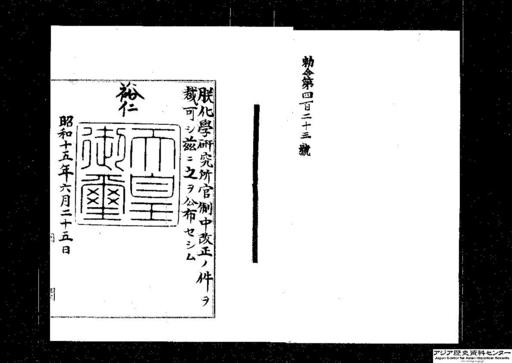 勅令第四百二十三號
朕化學研究所官制中改正ノ件ヲ
裁可シ茲ニ之ヲ公布セシム
裕仁
天皇
御璽
昭和十五年六月二十五日
アジア歴史資料センター
Japan Center for Asian Historical Records